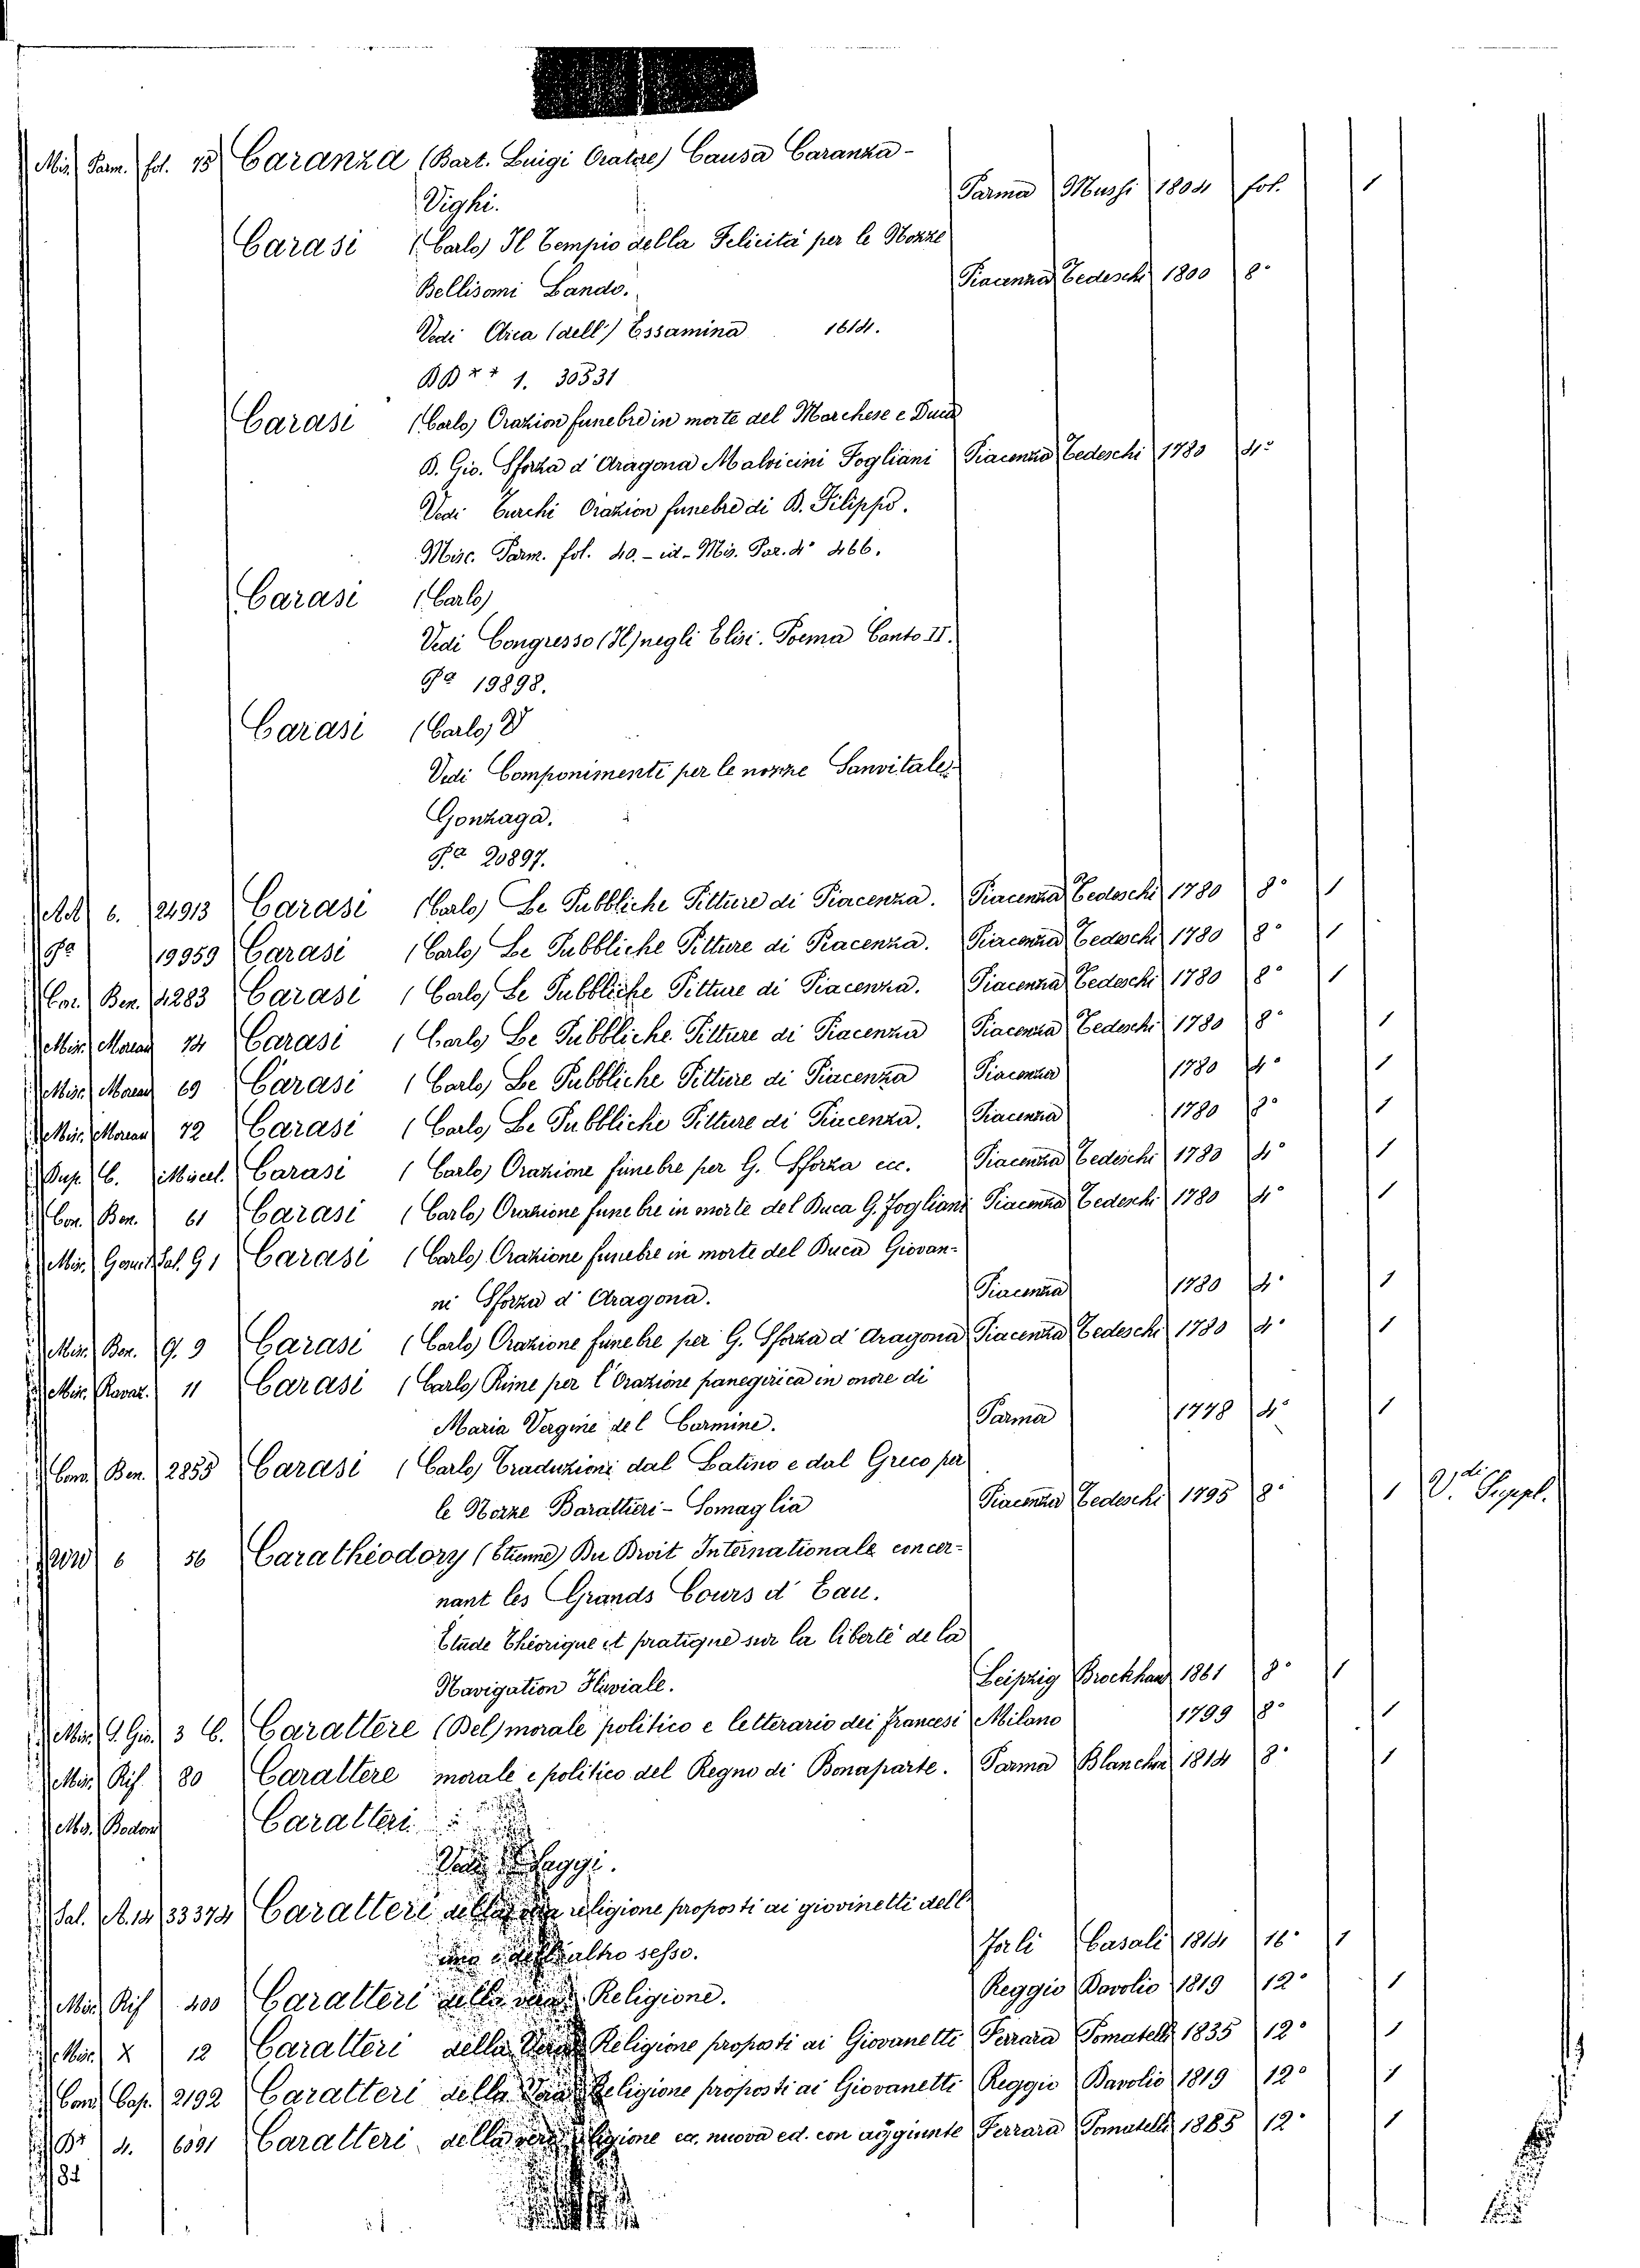 Mis. Parm. fol. 15 Caranza (Bart. Luigi Oratore) Causa Caranza-
Vighi. Parma Mussi 1804 fol. 1
Carasi (Carlo) Il Tempio della Felicità per le Nozze
Bellisomi Lando. Piacenza Tedeschi 1800 8°
Vedi Arca (dell') Essamina 1614.
BB ** 1. 30531
Carasi (Carlo) Orazion funebre in morte del Marchese e Duca
D. Gio. Sforza d'Aragona Malvicini Fogliani Piacenza Tedeschi 1780 4°
Vedi Turchi Orazion funebre di D. Filippo.
Misc. Parm. fol. 40. - id - Mis. Par. 4° 466.
Carasi (Carlo)
Vedi Congresso (Il) negli Elisi. Poema Canto II.
Pa 19898.
Carasi (Carlo)
Vedi Componimenti per le nozze Sanvitale
Gonzaga.
Pa 20897.
6. 24913 Carasi (Carlo) Le Pubbliche Pitture di Piacenza. Piacenza Tedeschi 1780 8° 1
Pa 19959 Carasi (Carlo) Le Pubbliche Pitture di Piacenza. Piacenza Tedeschi 1780 8° 1
Ben. 4283 Carasi (Carlo) Le Pubbliche Pitture di Piacenza. Piacenza Tedeschi 1780 8° 1
Misc. Moreau 74 Carasi (Carlo) Le Pubbliche Pitture di Piacenza Piacenza Tedeschi 1780 8° 1
Misc. Moreau 69 Carasi (Carlo) Le Pubbliche Pitture di Piacenza Piacenza 1780 4° 1
Mis. Moreau 72 Carasi (Carlo) Le Pubbliche Pitture di Piacenza. Piacenza 1780 8° 1
Dup. C. Miscel. Carasi (Carlo) Orazione funebre per G. Sforza ecc. Piacenza Tedeschi 1780 4° 1
Con. Ben. 61 Carasi (Carlo) Orazione funebre in morte del Duca G. Fogliani Piacenza Tedeschi 1780 4° 1
Mis. Sal. G 1 Carasi (Carlo) Orazione funebre in morte del Duca Giovan-
ni Sforza d'Aragona. Piacenza 1780 4° 1
Mis. Ben. G. 9 Carasi (Carlo) Orazione funebre per G. Sforza d'Aragona Piacenza Tedeschi 1780 4° 1
Mis. Ravaz. 11 Carasi (Carlo) Rime per l'Orazione panegirica in onore di
Maria Vergine del Carmine. Parma 1778 4° 1
Conv. Ben. 2855 Carasi (Carlo) Traduzioni dal Latino e dal Greco per
le Nozze Barattieri - Somaglia Piacenza Tedeschi 1795 8° 1 V. Suppl.
6 56 Carathéodory (Etienne) Du Droit Internationale concer-
nant les Grands Cours d'Eau.
Etude Théorique et pratique sur la liberté de la
Navigation Fluviale. Leipzig Brockhaus 1861 8° 1
Mis. 3 C. Carattere (Del) morale politico e letterario dei francesi Milano 1799 8° 1
Mis. Rif. 80 Carattere morale e politico del Regno di Bonaparte. Parma Blanchon 1814 8° 1
Mis. Bodon Caratteri
Vedi Saggi.
Sal. A. 14 33374 Caratteri della religione proposti ai giovinetti dell'
altro sesso. Forlì Casali 1814 16° 1
Mis. Rif 400 Caratteri della vera Religione. Reggio Davolio 1819 12° 1
Mis. X 12 Caratteri della Vera Religione proposti ai Giovanetti Ferrara Pomatelli 1835 12° 1
Conv. Cap. 2192 Caratteri della Vera Religione proposti ai Giovanetti Reggio Davolio 1819 12° 1
4. 6091 Caratteri della vera Religione ec. nuova ed. con aggiunte Ferrara Pomatelli 1885 12° 1